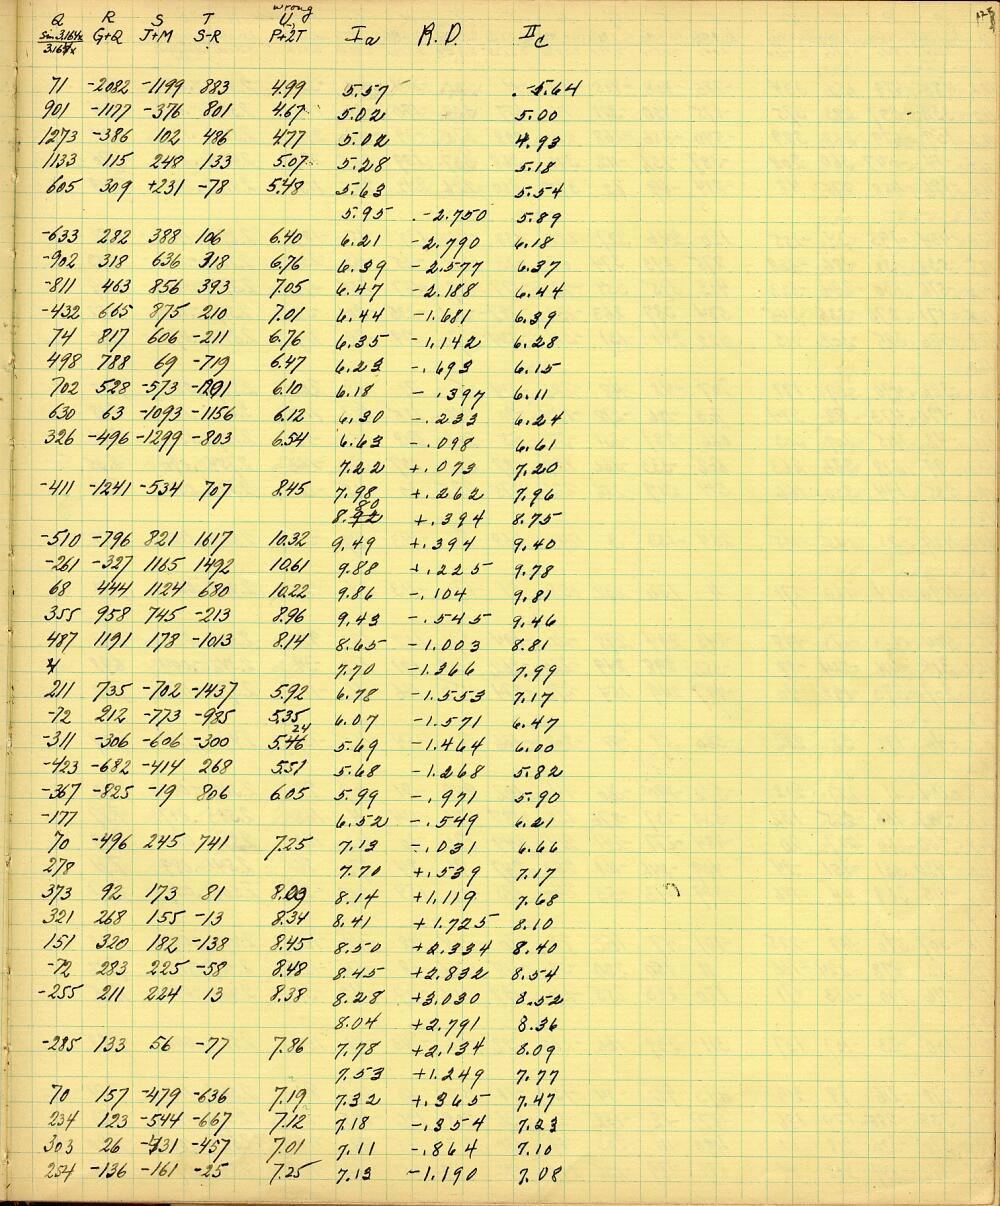 wrong
Q R S T U,
sin 3.164x G+Q J+M S-R P+2T Ia R.D. IIc
3.164x
71 -2082 -1199 883 4.99 5.57 -5.64
901 -1177 -376 801 4.67 5.02 5.00
1273 -386 102 486 4.77 5.02 4.93
1133 115 248 133 5.07 5.28 5.18
605 309 +231 -78 5.48 5.63 5.54
5.95 -2.750 5.89
-633 282 388 106 6.40 6.21 -2.790 6.18
-902 318 636 318 6.76 6.39 -2.577 6.37
-811 463 856 393 7.05 6.47 -2.188 6.44
-432 665 875 210 7.01 6.44 -1.681 6.39
74 817 606 -211 6.76 6.35 -1.142 6.28
498 788 69 -719 6.47 6.23 -.693 6.15
702 528 -573 6.10 6.18 -.397 6.11
630 63 -1093 -1156 6.12 6.30 -.233 6.24
326 -496 -1299 -803 6.54 6.63 -.098 6.61
7.22 +.073 7.20
-411 -1241 -534 707 8.45 7.98 +.262 7.96
80
8.92 +.394 8.75
-510 -796 821 1617 10.32 9.49 +.394 9.40
-261 -327 1165 1492 10.61 9.88 +.225 9.78
68 444 1124 680 10.22 9.86 -.104 9.81
355 958 745 -213 8.96 9.43 -.545 9.46
487 1191 178 -1013 8.14 8.65 -1.003 8.81
7.70 -1.366 7.99
211 735 -702 -1437 5.92 6.78 -1.553 7.17
-72 212 -773 -985 5.35 6.07 -1.571 6.47
24
-311 -306 -606 -300 5.46 5.69 -1.464 6.00
-423 -682 -414 268 5.51 5.68 -1.268 5.82
-367 -825 -19 806 6.05 5.99 -.971 5.90
-177 6.52 -.549 6.21
70 -496 245 741 7.25 7.13 -.031 6.66
278 7.70 +.539 7.17
373 92 173 81 8.09 8.14 +1.119 7.68
321 268 155 -13 8.34 8.41 +1.725 8.10
151 320 182 -138 8.45 8.50 +2.334 8.40
-72 283 225 -58 8.48 8.45 +2.832 8.54
-255 211 224 13 8.38 8.28 +3.030 8.52
8.04 +2.791 8.36
-285 133 56 -77 7.86 7.78 +2.134 8.09
7.53 +1.249 7.77
70 157 -479 -636 7.19 7.32 +.365 7.47
234 123 -544 -667 7.12 7.18 -.354 7.23
303 26 -431 -457 7.01 7.11 -.864 7.10
254 -136 -161 -25 7.25 7.13 -1.190 7.08